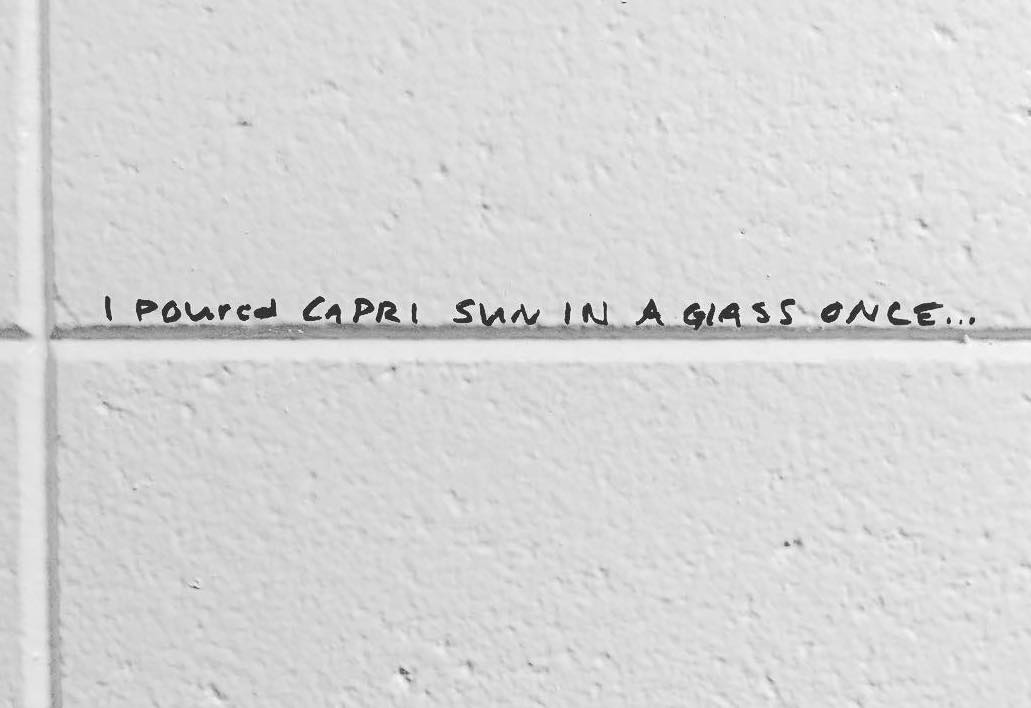 I POURED CAPRI SUN IN A GLASS ONCE...